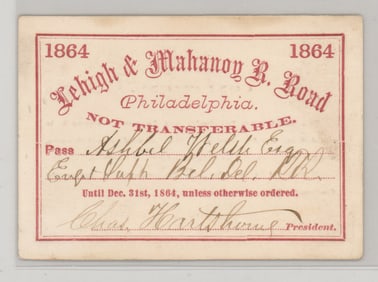 1864 1864
Lehigh & Mahanoy R. Road
Philadelphia.
NOT TRANSFERABLE.
Pass Ashbel Welsh Esq
Engr & Supt Bel. Del. RR.
Until Dec. 31st, 1864, unless otherwise ordered.
Chas. Hartshorne President.